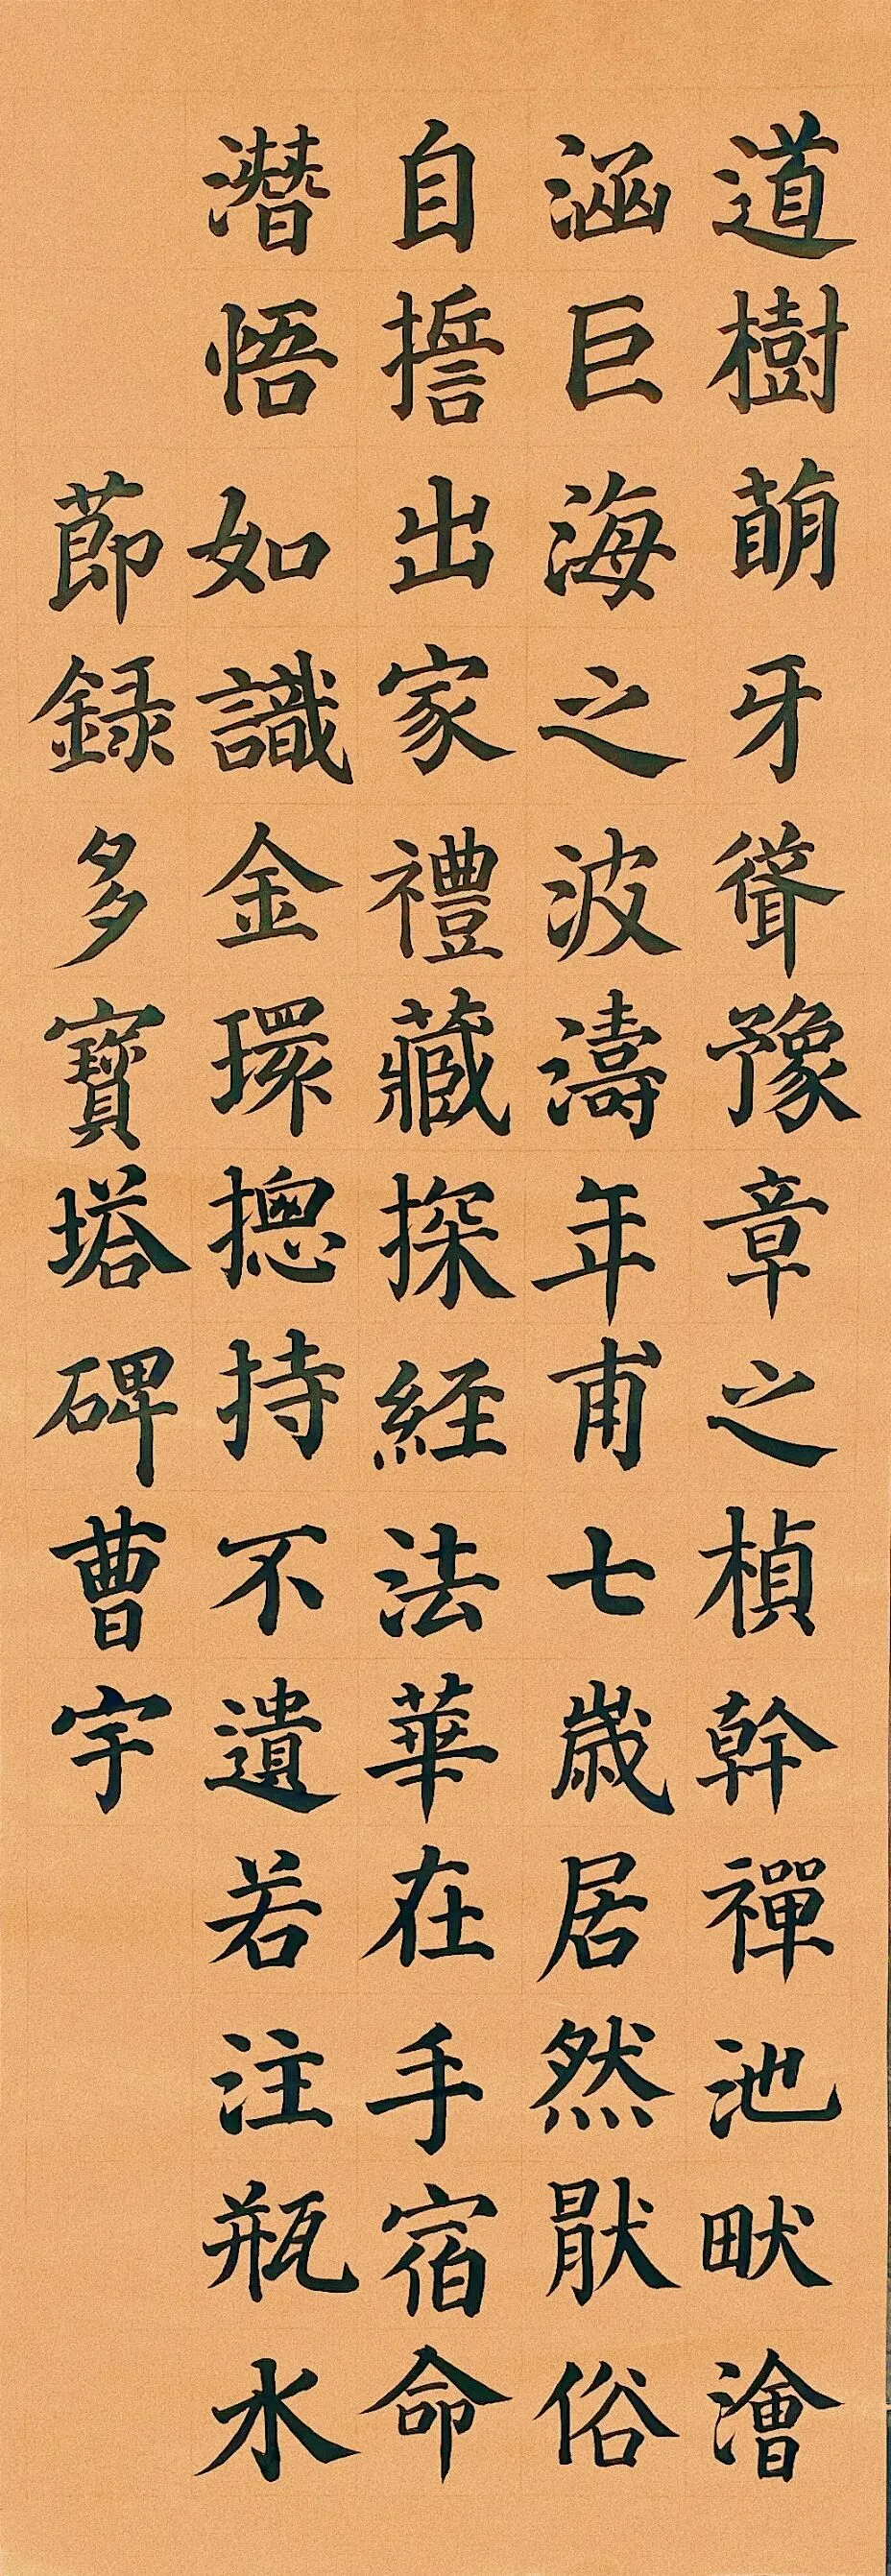 道樹萌牙聳豫章之楨幹禪池畎澮
涵巨海之波濤年甫七歲居然猒俗
自誓出家禮藏探經法華在手宿命
潛悟如識金環摠持不遺若注瓶水
莭録多寶塔碑曹宇